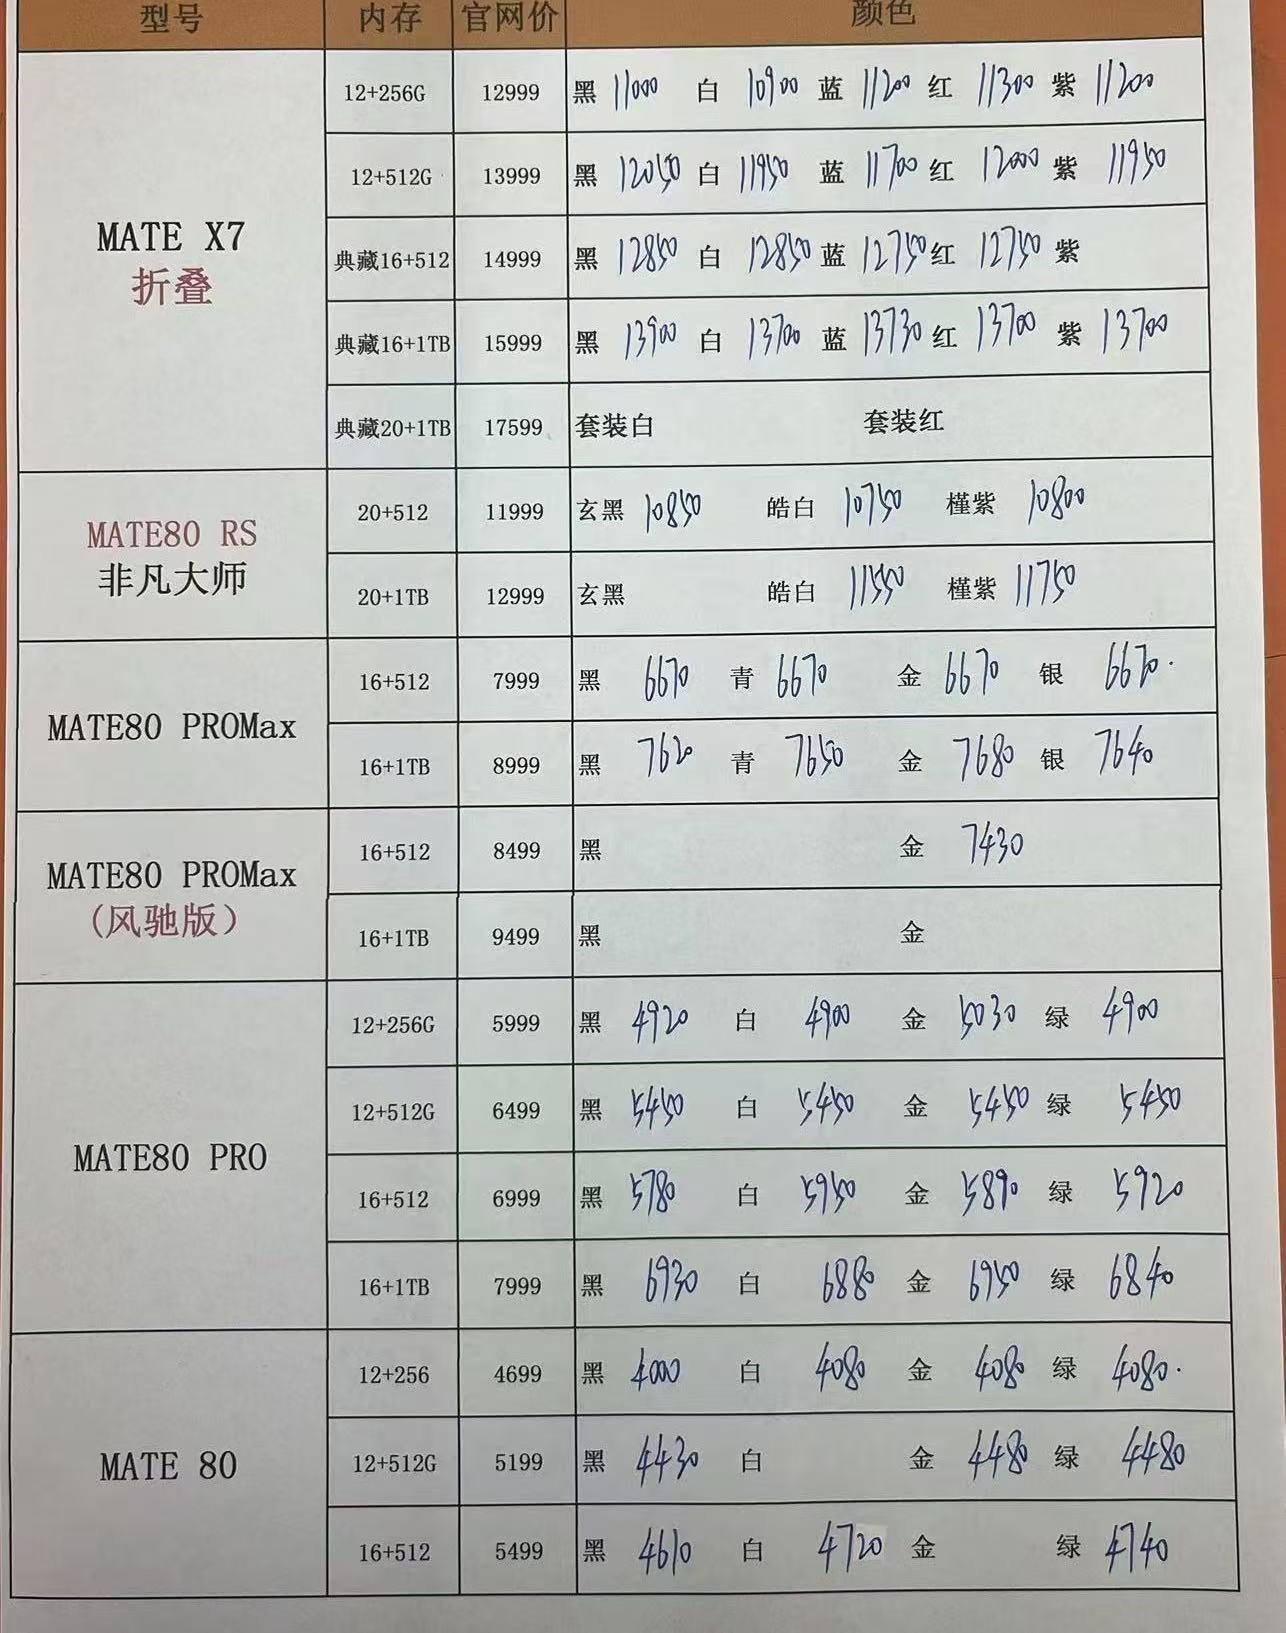 型号 内存 官网价 颜色
MATE X7
折叠
12+256G 12999 黑 11000 白 10900 蓝 11200 红 11300 紫 11200
12+512G 13999 黑 12050 白 11950 蓝 11700 红 12000 紫 11950
典藏16+512 14999 黑 12850 白 12850 蓝 12750 红 12750 紫
典藏16+1TB 15999 黑 13900 白 13700 蓝 13730 红 13700 紫 13700
典藏20+1TB 17599 套装白 套装红
MATE80 RS
非凡大师
20+512 11999 玄黑 10850 皓白 10750 槿紫 10800
20+1TB 12999 玄黑 皓白 11550 槿紫 11750
MATE80 PROMax
16+512 7999 黑 6670 青 6670 金 6670 银 6670.
16+1TB 8999 黑 7620 青 7650 金 7680 银 7640
MATE80 PROMax
(风驰版)
16+512 8499 黑 金 7430
16+1TB 9499 黑 金
MATE80 PRO
12+256G 5999 黑 4920 白 4900 金 5030 绿 4900
12+512G 6499 黑 5450 白 5450 金 5450 绿 5450
16+512 6999 黑 5780 白 5950 金 5890 绿 5920
16+1TB 7999 黑 6930 白 6880 金 6950 绿 6840
MATE 80
12+256 4699 黑 4000 白 4080 金 4080 绿 4080.
12+512G 5199 黑 4430 白 金 4480 绿 4480
16+512 5499 黑 4610 白 4720 金 绿 4740